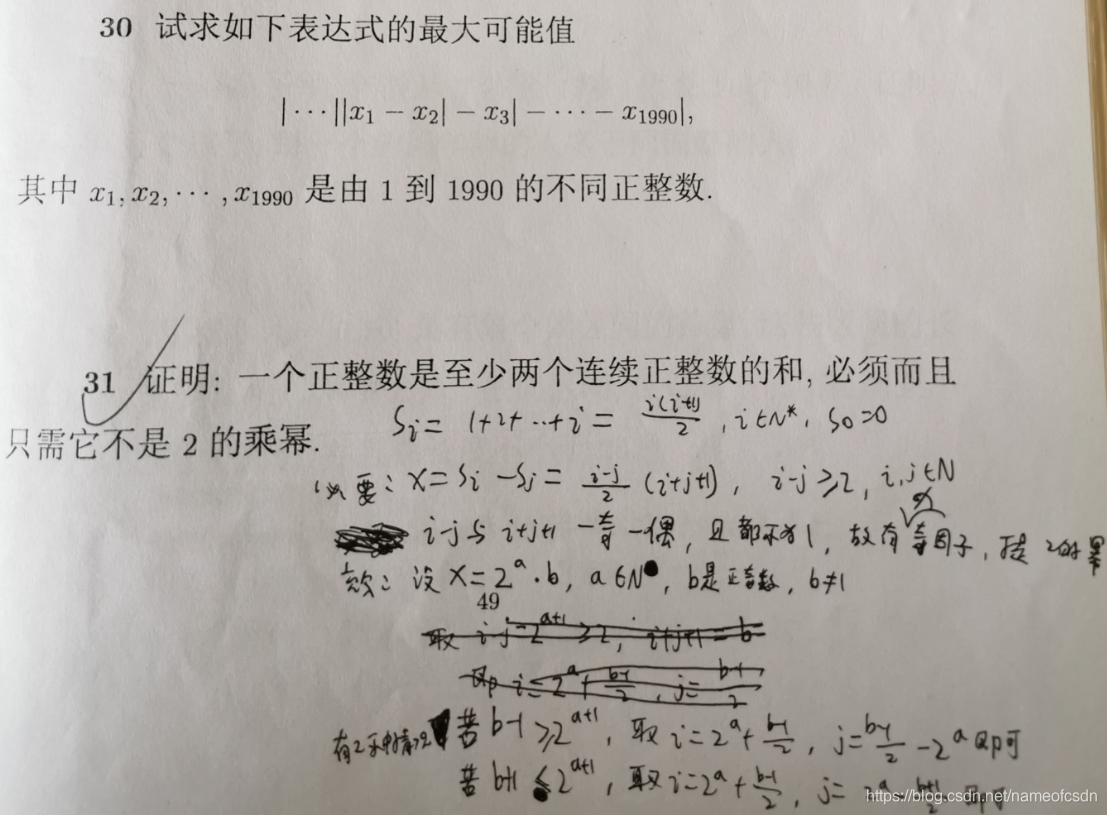 30 试求如下表达式的最大可能值
|···||x₁ − x₂| − x₃| − ··· − x₁₉₉₀|,
其中 x₁, x₂, ··· , x₁₉₉₀ 是由 1 到 1990 的不同正整数.
31 证明: 一个正整数是至少两个连续正整数的和, 必须而且
只需它不是 2 的乘幂.
Sᵢ = 1+2+···+i = i(i+1)/2 , i∈N*, S₀=0
必要: X = Sᵢ − Sⱼ = (i−j)/2 (i+j+1), i−j ≥2, i,j∈N
i−j 与 i+j+1 一奇一偶, 且都不为1, 故有奇因子, 2的幂
设 X = 2ᵃ·b, a∈N, b是正奇数, b≠1
49
取 i−j=2ᵃ⁺¹ ≥2, i+j+1=b
即 i=2ᵃ+(b−1)/2, j=(b−1)/2
若 b−1 ≥2ᵃ⁺¹, 取 i=2ᵃ+(b−1)/2, j=(b−1)/2 −2ᵃ 即可
若 b+1 ≤2ᵃ⁺¹, 取 i=2ᵃ+(b−1)/2, j=
https://blog.csdn.net/nameofcsdn